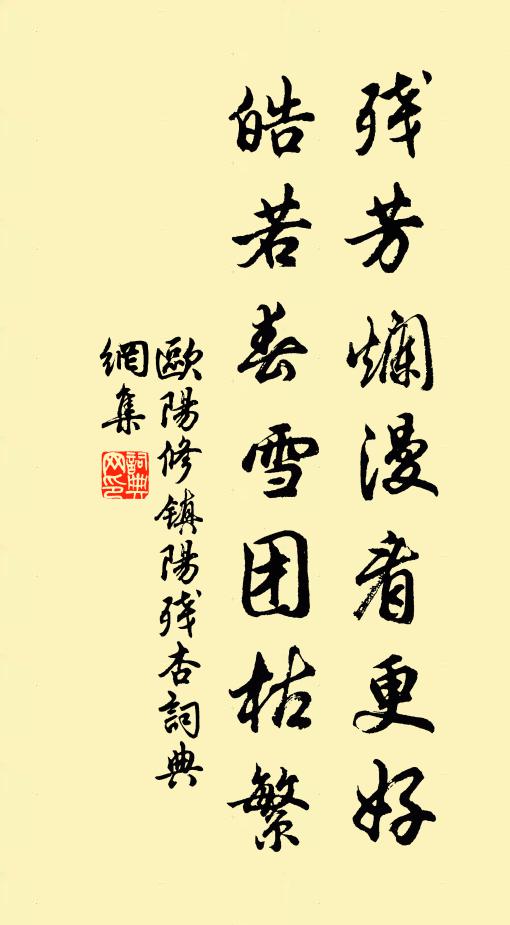 残芳爛漫看更好
皓若春雪团枯繁
歐陽修鎮陽残杏詞典
網集
詞典网印